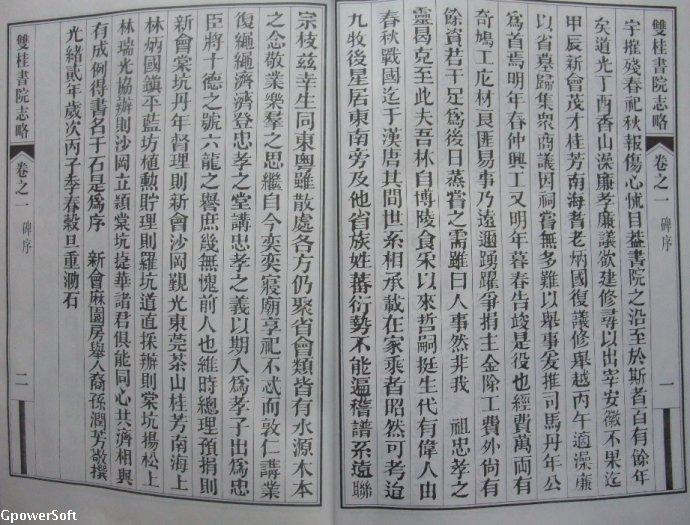 雙桂書院志略
卷之一 碑序
一
宇摧殘春祀秋報傷心怵目益書院之沿至於斯者百有餘年
矣道光丁酉香山澡廉孝廉議欲建修尋以出宰安徽不果迄
甲辰新會茂才桂芳南海耆老炳國復議修舉越丙午適澡廉
以省墓歸集衆商議因祠嘗無多難以舉事爰推司馬丹年公
爲首焉明年春仲興工又明年暮春告竣是役也經費萬両有
奇鳩工庀材良匪易事乃遠邇踴躍爭捐主金除工費外尙有
餘資若干足爲後日蒸嘗之需雖曰人事然非我 祖忠孝之
靈曷克至此夫吾林自博陵食宋以來哲嗣挺生代有偉人由
春秋戰國迄于漢唐其間世系相承載在家乘者昭然可考迨
九牧後星居東南旁及他省族姓蕃衍勢不能遍稽譜系遠聯
宗枝茲幸生同東粵雖散處各方仍聚省會類皆有水源木本
之念敬業樂羣之思繼自今奕奕寢廟享祀不忒而敦仁講業
復繩繩濟濟登忠孝之堂講忠孝之義以期入爲孝子出爲忠
臣將十德之號六龍之譽庶幾無愧前人也維時總理預捐則
新會棠坑丹年督理則新會沙岡觀光東莞茶山桂芳南海上
林炳國鎮平藍坊植勲貯理則羅坑道直採辦則棠坑揚松上
林瑞光協辦則沙岡立顯棠坑㨗華諸君俱能同心共濟相與
有成例得書名于石是爲序 新會麻園房舉人裔孫潤芳敬撰
光緒貳年歲次丙子季春穀旦重泐石
雙桂書院志略
卷之一 碑序
二
GpowerSoft